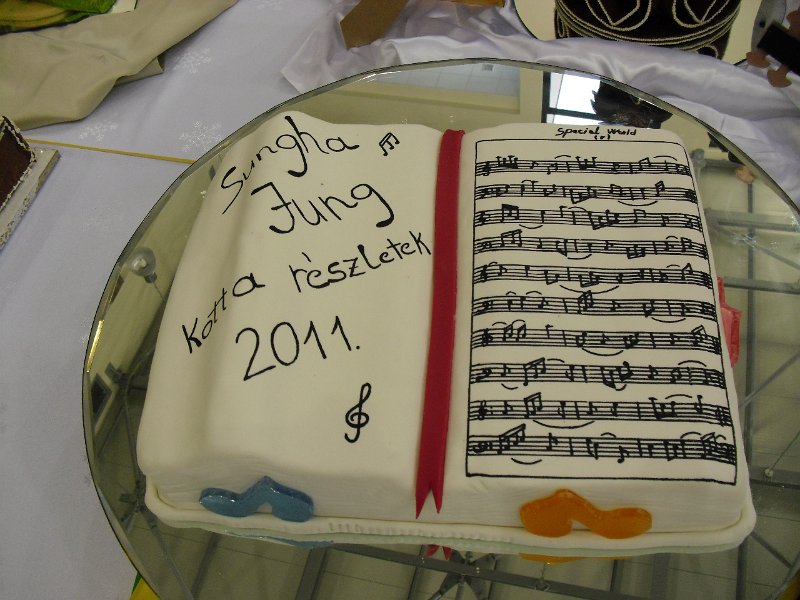 Sungha
Jung
Kotta részletek
2011.
Special World